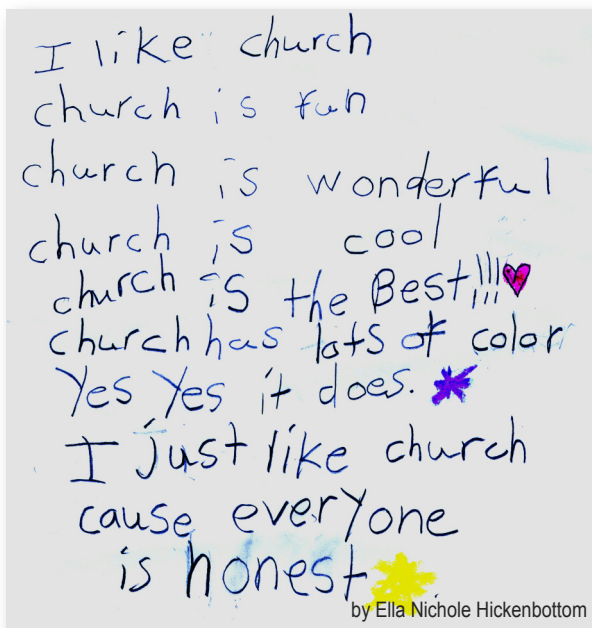 I like church
church is fun
church is wonderful
church is cool
church is the Best!!!!
church has lots of color
Yes Yes it does.
I just like church
cause everyone
is honest
by Ella Nichole Hickenbottom